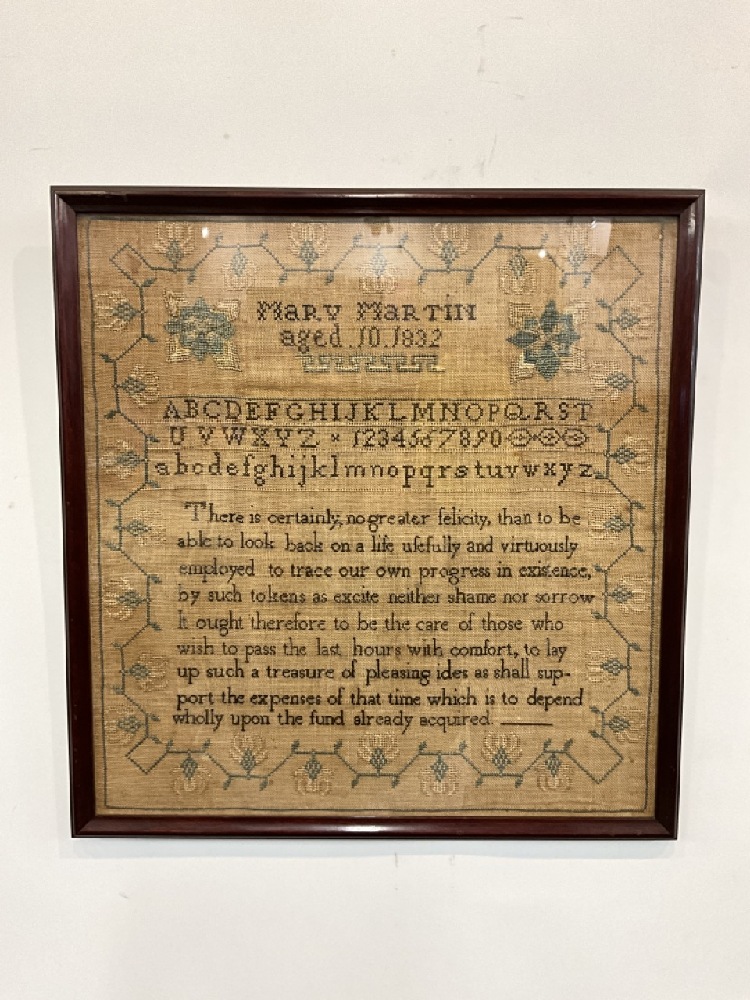 Mary Martin
aged .10. 1832
ABCDEFGHIJKLMNOPQRST
UVWXYZ × 1234567890
abcdefghijklmnopqrstuvwxyz
There is certainly, no greater felicity, than to be
able to look back on a life usefully and virtuously
employed to trace our own progress in existence,
by such tokens as excite neither shame nor sorrow
It ought therefore to be the care of those who
wish to pass the last hours with comfort, to lay
up such a treasure of pleasing ides as shall sup-
port the expenses of that time which is to depend
wholly upon the fund already acquired.